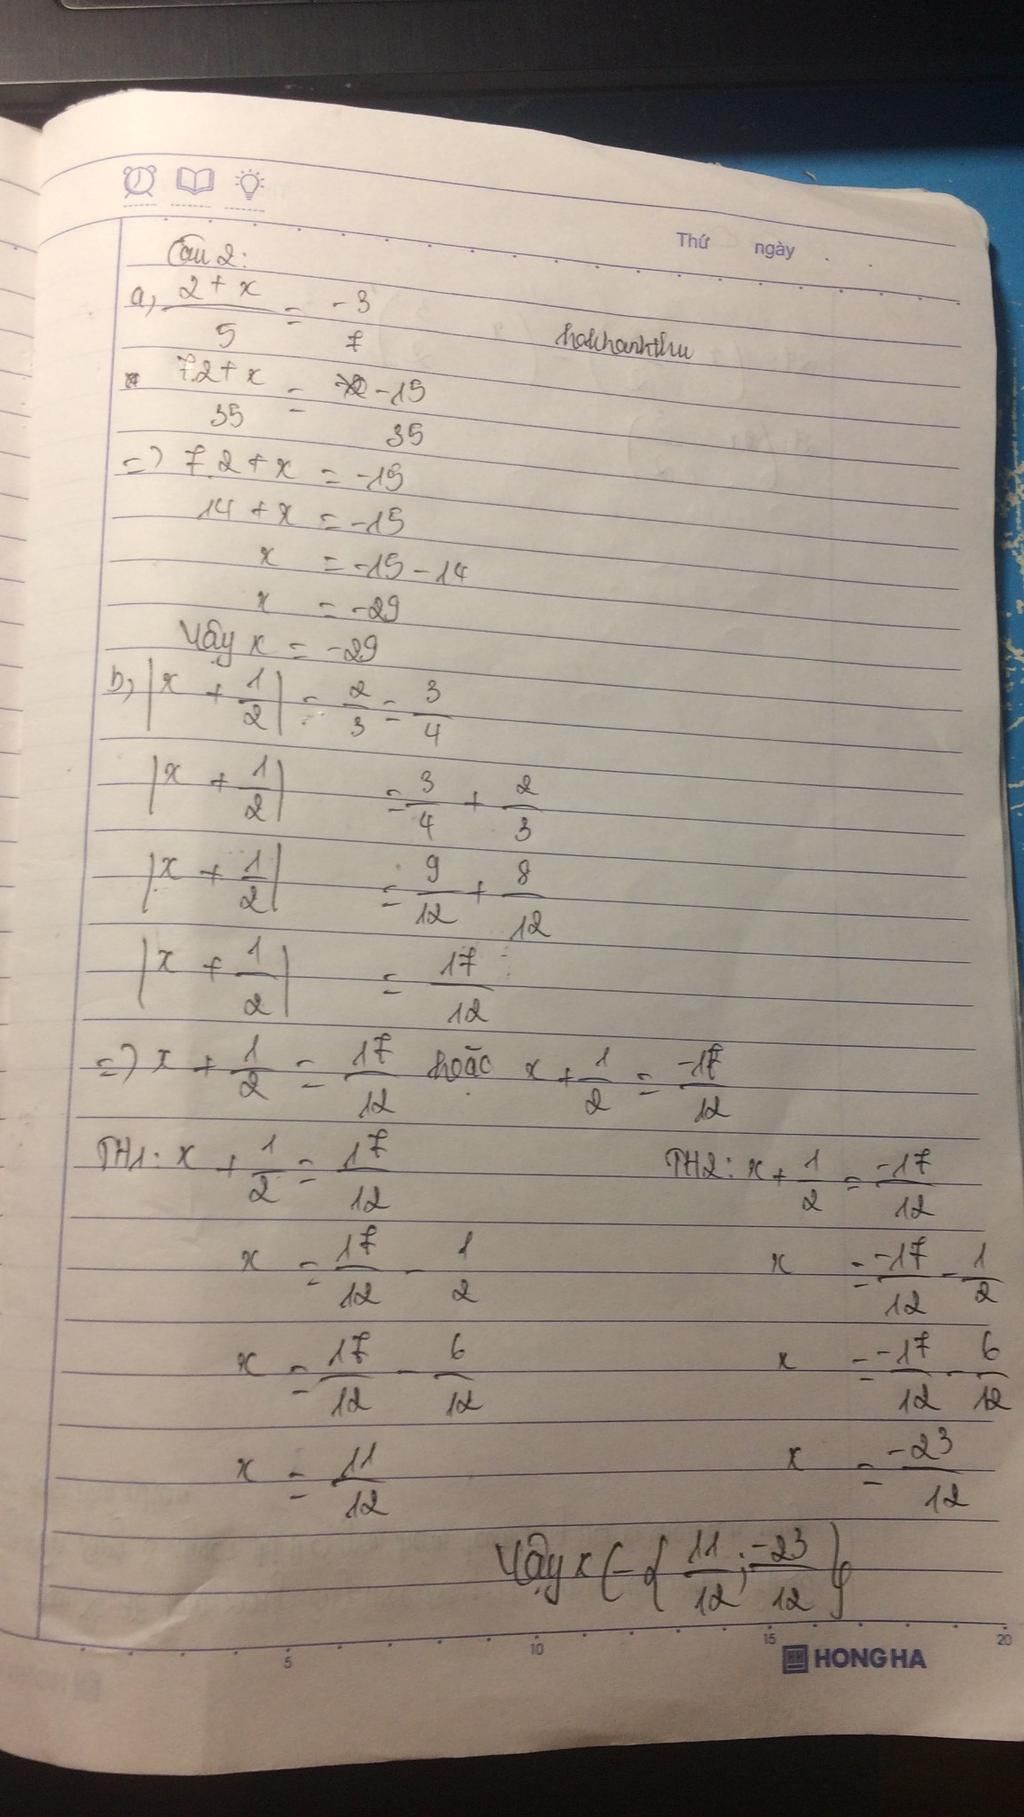 Thứ ngày
Câu 2:
a, (2 + x)/5 = -3/7
hakhanhthu
(7.2 + x)/35 = -15/35
=> 7.2 + x = -15
14 + x = -15
x = -15 - 14
x = -29
Vậy x = -29
b, |x + 1/2| = 2/3 = 3/4
|x + 1/2| = 3/4 + 2/3
|x + 1/2| = 9/12 + 8/12
|x + 1/2| = 17/12
=> x + 1/2 = 17/12 hoặc x + 1/2 = -17/12
TH1: x + 1/2 = 17/12 TH2: x + 1/2 = -17/12
x = 17/12 - 1/2 x = -17/12 - 1/2
x = 17/12 - 6/12 x = -17/12 - 6/12
x = 11/12 x = -23/12
Vậy x ∈ {11/12; -23/12}
5 10 15 20
HONG HA